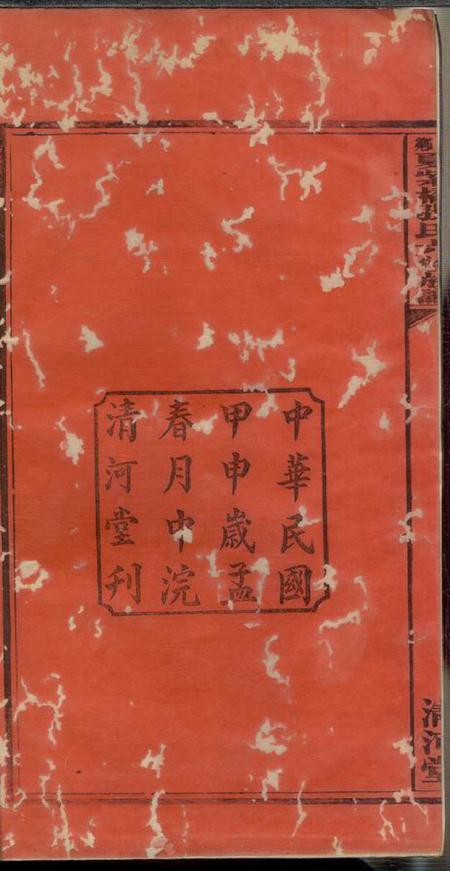 中華民國
甲申歲孟
春月中浣
清河堂刊
清河堂